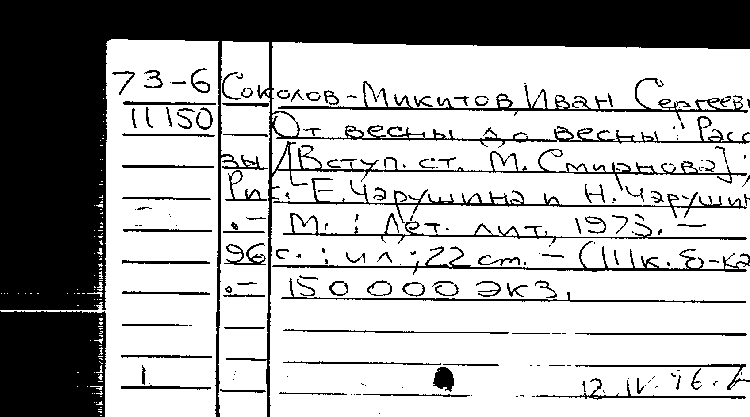 73-6 Соколов-Микитов, Иван Сергееви
11150 От весны до весны : Расс
зы / [Вступ. ст. М. Смирнова] ;
Рис. Е. Чарушина и Н. Чаруши
.— М. : Дет. лит., 1973. —
96 с. : ил ; 22 см. — (Шк. б-ка
.— 150 000 экз.
1 12.IV.96.